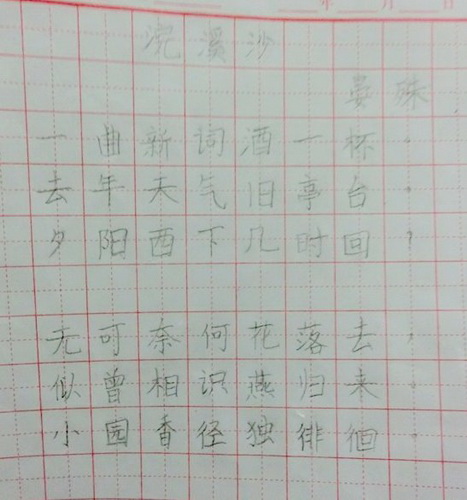 年 月
浣溪沙
晏殊
一曲新词酒一杯。
去年天气旧亭台。
夕阳西下几时回？
无可奈何花落去，
似曾相识燕归来。
小园香径独徘徊。